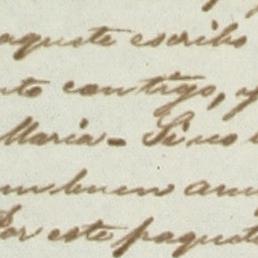 paquete escribo
contigo, y
Maria - Si no
un buen ami
Por este paquete